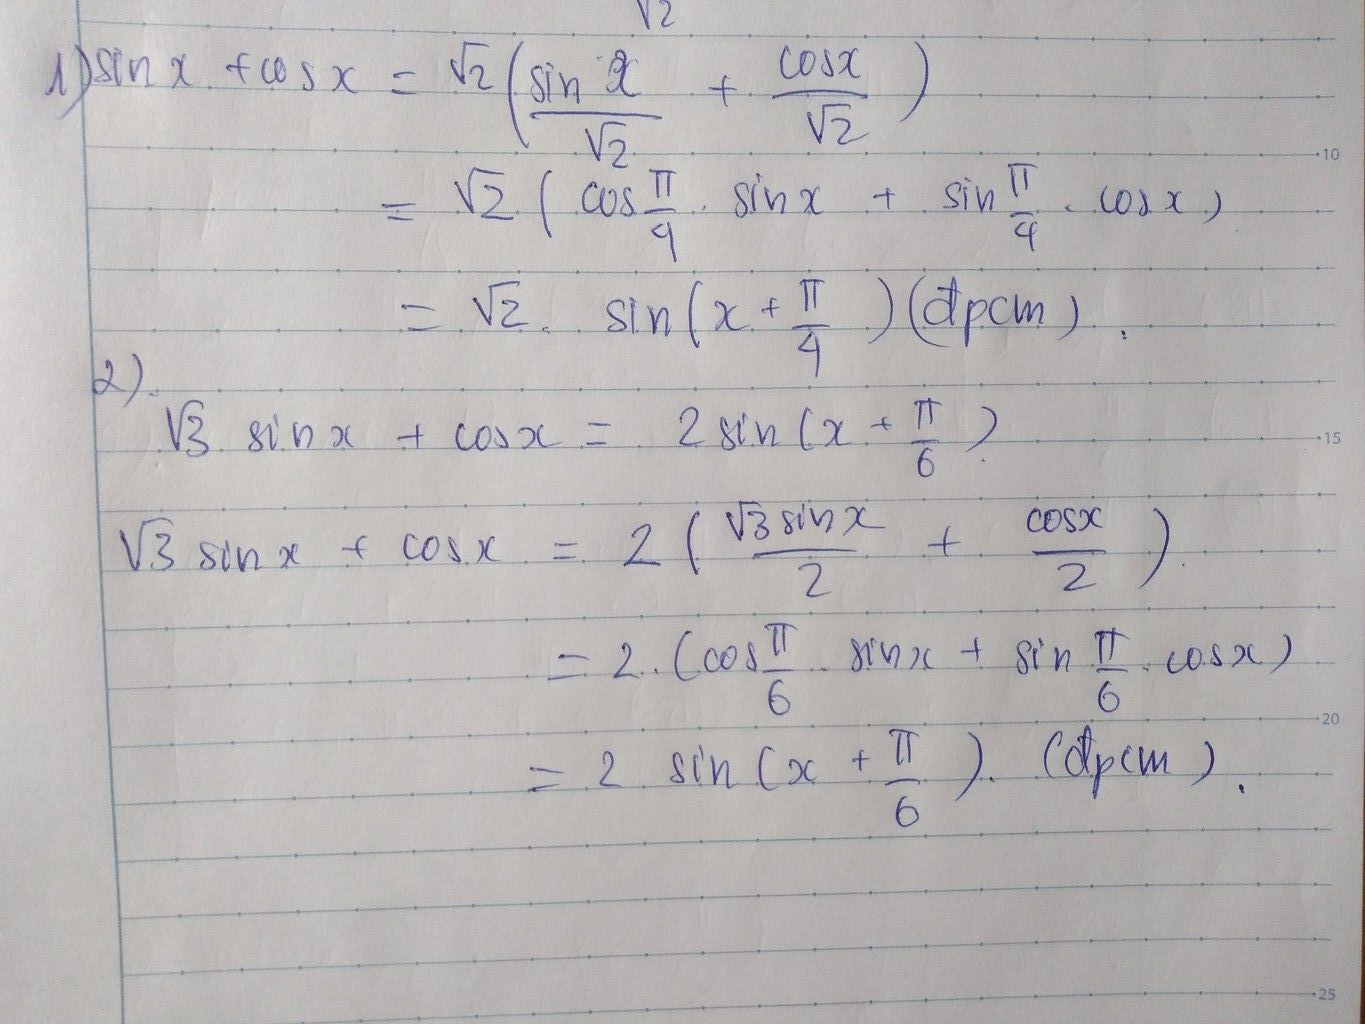 √2
1) sin x + cos x = √2 (sin x/√2 + cosx/√2)
= √2 ( cos π/4 . sin x + sin π/4 . cos x )
= √2 . sin(x + π/4) (đpcm) .
2).
√3 sin x + cosx = 2 sin(x + π/6).
√3 sin x + cosx = 2 ( √3 sin x/2 + cosx/2 ).
= 2 . (cos π/6 . sin x + sin π/6 . cosx)
= 2 sin(x + π/6). (đpcm) .
10
15
20
25